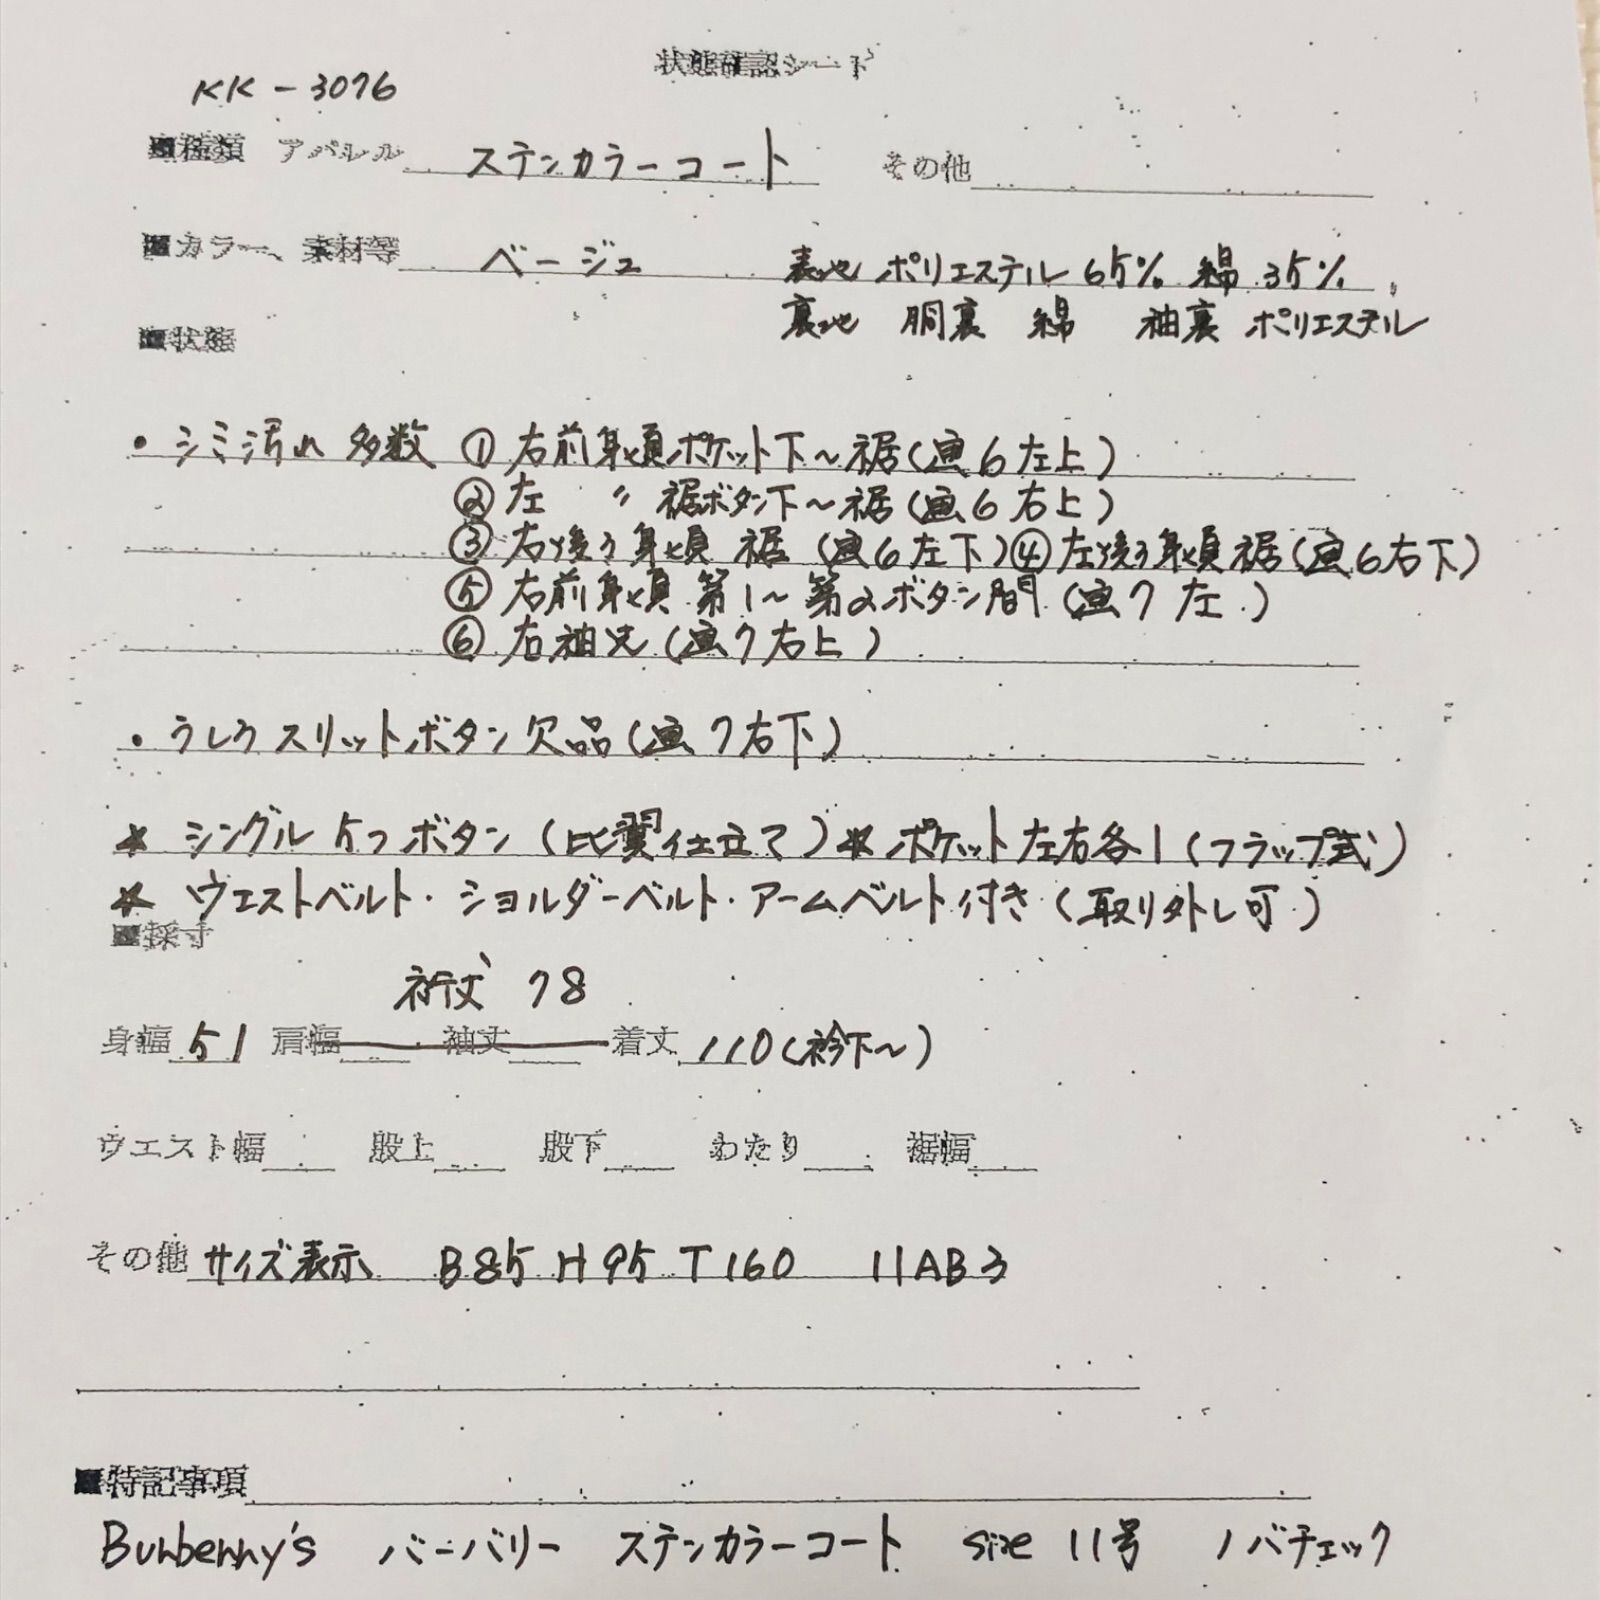 状態確認シート
KK-3076
■種類 アパレル ステンカラーコート その他
■カラー、素材等 ベージュ 表地 ポリエステル65% 綿35%
裏地 胴裏 綿 袖裏 ポリエステル
■状態
・シミ汚れ 多数 ①右前身頃ポケット下~裾(画6左上)
②左 〃 裾ボタン下~裾(画6右上)
③右後ろ身頃 裾(画6左下)④左後ろ身頃裾(画6右下)
⑤右前身頃 第1~第2ボタン間(画7左)
⑥右袖先(画7右上)
・うしろスリットボタン欠品(画7右下)
* シングル5つボタン(比翼仕立て)* ポケット左右各1(フラップ式)
* ウエストベルト・ショルダーベルト・アームベルト付き(取り外し可)
■採寸
裄丈 78
身幅 51 肩幅 袖丈 着丈 110(衿下~)
ウエスト幅 股上 股下 わたり 裾幅
その他 サイズ表示 B85 H95 T160 11AB3
■特記事項
Burberry's バーバリー ステンカラーコート size 11号 ノバチェック